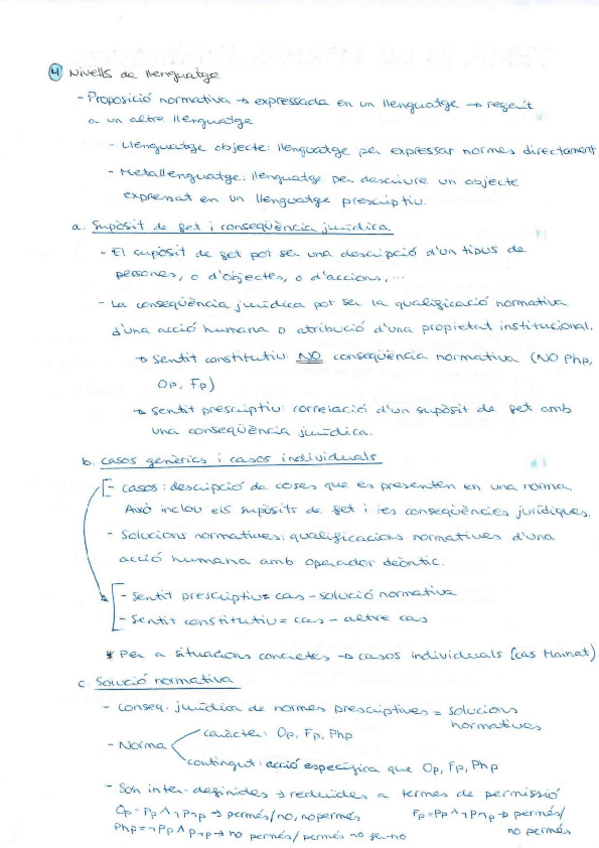 ④ Nivells de llenguatge
- Proposició normativa → expressada en un llenguatge → referit
a un altre llenguatge
- Llenguatge objecte: llenguatge per expressar normes directament
- Metallenguatge: llenguatge per descriure un objecte
expressat en un llenguatge prescriptiu.
a. Supòsit de fet i conseqüència jurídica
- El supòsit de fet pot ser una descripció d'un tipus de
persones, o d'objectes, o d'accions,...
- La conseqüència jurídica pot ser la qualificació normativa
d'una acció humana o atribució d'una propietat institucional.
→ Sentit constitutiu: NO conseqüència normativa (NO Php,
Op, Fp)
→ Sentit prescriptiu: correlació d'un supòsit de fet amb
una conseqüència jurídica.
b. Casos genèrics i casos individuals
- Casos: descripció de coses que es presenten en una norma.
Això inclou els supòsits de fet i les conseqüències jurídiques.
- Solucions normatives: qualificacions normatives d'una
acció humana amb operador deòntic.
- Sentit prescriptiu = cas - solució normativa
- Sentit constitutiu = cas - altre cas
* Per a situacions concretes → casos individuals (cas Mainat)
c. Solució normativa
- Conseq. jurídica de normes prescriptives = solucions
normatives
caràcter: Op, Fp, Php
- Norma
contingut: acció específica que Op, Fp, Php
- Són inter-definides → reduïdes a termes de permissió
Op = Pp ∧ ¬P¬p → permés/no, no permés
Fp = Pp ∧ ¬P¬p → permés/
no permés
Php = ¬Pp ∧ P¬p → no permés/permés no fer-ho